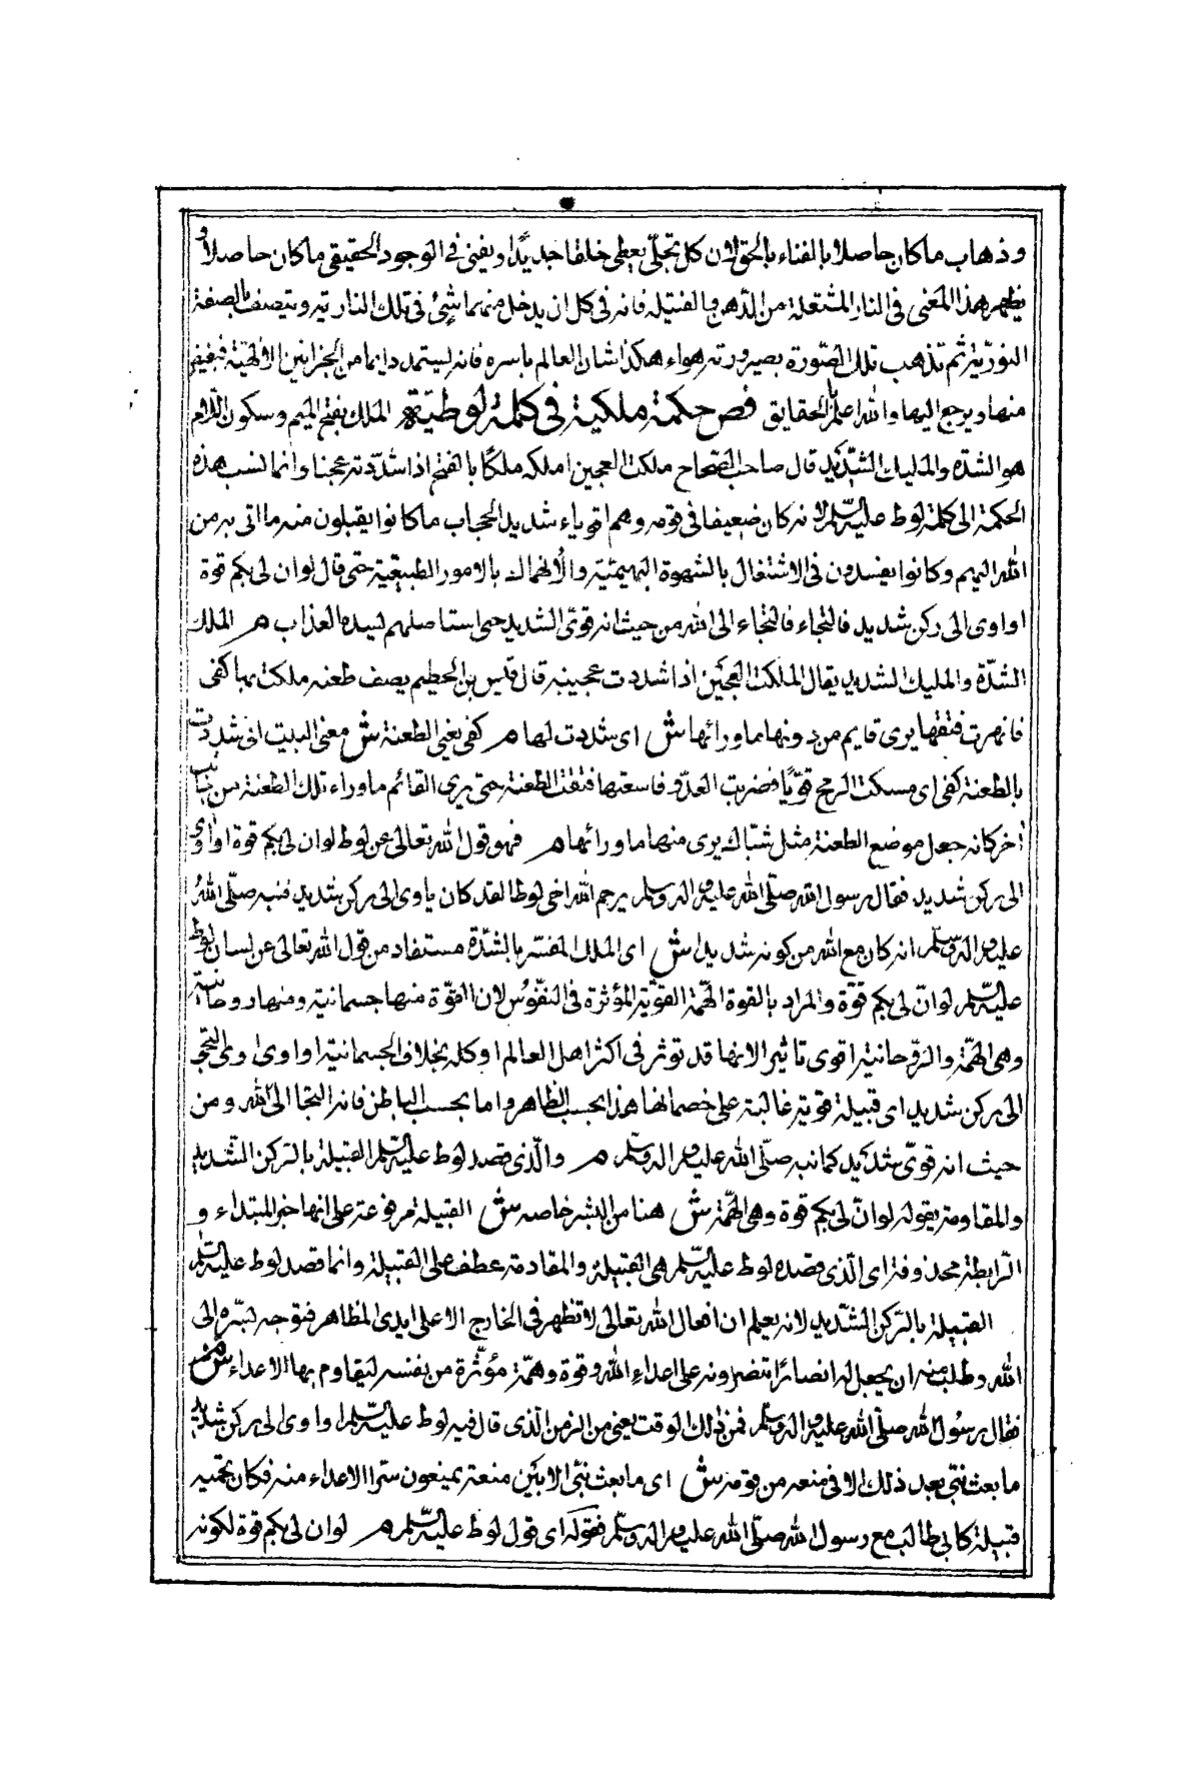 وذهاب ماكان حاصلا بالفناء بالحق لان كل تجلى يعطى خلقا جديدا ويفنى فى الوجود الحقيقى ماكان حاصلا و
يظهر هذا المعنى فى النار المشتعلة من الدهن والفتيله فانه فى كل ان يدخل منهما شئ فى تلك النارية ويتصف بالصفة
النوريّة ثم تذهب تلك الصّورة بصيرورته هواء هكذا شان العالم باسره فانه ليستمد دايما من الخزاين الالهيّة فيفيض
منها ويرجع اليها والله اعلم بالحقايق فص حكمة ملكية فى كلمة لوطيّة م الملك بفتح الميم وسكون اللام
هو الشدّة والمليك الشديد قال صاحب الصحاح ملكت العجين املكه ملكًا بالفتح اذا شدّدته عجنا وانما نسب هذه
الحكمة الى كلمة لوط عليه السلم لانه كان ضعيفا فى قومه وهم اقوياء شديد الحجاب ماكانوا يقبلون منه ما اتى به من
الله اليهم وكانوا يفسدون فى الاشتغال بالشهوة البهيميّة والانهماك بالامور الطبيعية حتى قال لو ان لى بكم قوة
او اوى الى ركن شديد فالتجاء فالتجاء الى الله من حيث انه قوىّ الشديد حتى استاصلهم لشيده العذاب م الملك
الشدّة والمليك الشديد يقال ملكت العجين اذا شددت عجينه قال قيس بن الحطيم يصف طعنه ملكت بها كفى
فانهرت فتقها يرى قايم من دونها ماورائها ش اى شددت لها م كفى يعنى الطعنة ش معنى البيت انى شددت
بالطعنة كفى اى مسكت الرمح قويًا فضربت العدوّ فاسعتها فتقت الطعنة حتى يرى القائم ماوراء تلك الطعنة من جانب
اخر كانه جعل موضع الطعنة مثل شبّاك يرى منها ماورائها م فهو قول الله تعالى عن لوط لو ان لى بكم قوة او اوى
الى ركن شديد فقال رسول الله صلّى الله عليه واله وسلم يرحم الله اخى لوطا لقد كان ياوى الى ركن شديد فنبه صلّى الله
عليه واله وسلم انه كان مع الله من كونه شديدا ش اى الملك المفسّر بالشدّة مستفاد من قول الله تعالى عن لسان لوط
عليه السلم لو انّ لى بكم قوّة والمراد بالقوة الهمّة القويّة المؤثرة فى النفوس لان القوّة منها جسمانية ومنها روحانية
وهى الهمّة والروحانية اقوى تاثيرا لانها قد توثر فى اكثر اهل العالم او كله بخلاف الجسمانية او اوى اى التجى
الى ركن شديد اى قبيلة قوية غالبة على خصمائها هذا بحسب الظاهر واما بحسب الباطن فانه التجا الى الله ومن
حيث انه قوىّ شديد كما نبه صلّى الله عليه واله وسلم م والّذى قصد لوط عليه السلم القبيلة بالركن الشديد
والمقاومة بقوله لو انّ لى بكم قوة وهى الهمّة ش هنا من البشر خاصه ش القبيلة مرفوعة على انها خبر المبتداء و
الرّابطة محذوفة اى الّذى قصده لوط عليه السلم هى القبيلة والمقاومة عطف على القبيلة وانما قصد لوط عليه السلم
القبيلة بالرّكن الشّديد لانه يعلم ان افعال الله تعالى لا تظهر فى الخارج الا على ايدى المظاهر فتوجه بسرّه الى
الله وطلب منه ان يجعل له انصارًا ينصرونه على اعداء الله وقوة وهمّة مؤثّرة من نفسه ليقاوم بها الاعداء م
فقال رسول الله صلّى الله عليه واله وسلم فمن ذلك الوقت يعنى من الزمن الّذى قال فيه لوط عليه السلم او اوى الى ركن شديد
ما بعث نبّى بعد ذلك الا فى منعه من قومه ش اى ما بعث نبّى الا بين منعة يمنعون شر الاعداء منه فكان يحميه
قبيلة كابى طالب مع رسول الله صلّى الله عليه واله وسلم فقوله اى قول لوط عليه السلم م لو ان لى بكم قوة لكونه